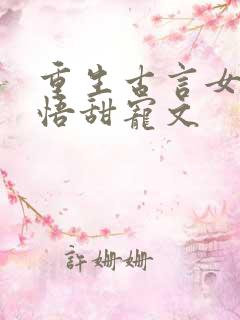 重生古言女
悟甜寵文
許姍姍